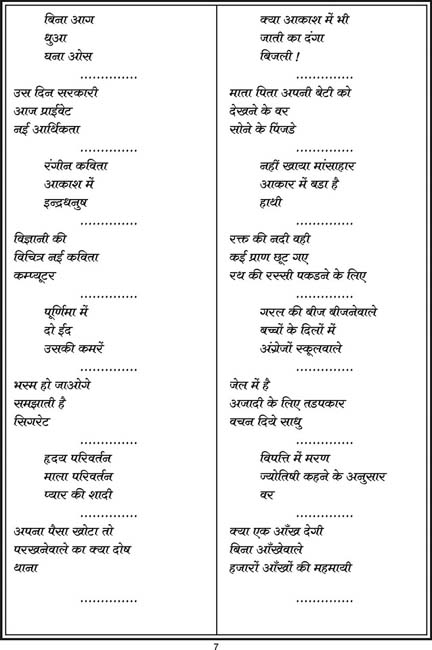 बिना आग
धुआ
घना ओस
..............
उस दिन सरकारी
आज प्राईवेट
नई आर्थिकता
..............
रंगीन कविता
आकाश में
इन्द्रधनुष
..............
विज्ञानी की
विचित्र नई कविता
कम्प्यूटर
..............
पूर्णिमा में
दो ईद
उसकी कमरें
..............
भस्म हो जाओगे
समझाती है
सिगरेट
..............
हृदय परिवर्तन
माला परिवर्तन
प्यार की शादी
..............
अपना पैसा खोटा तो
परखनेवाले का क्या दोष
थाना
..............
क्या आकाश में भी
जाती का दंगा
बिजली !
..............
माता पिता अपनी बेटी को
देखने के वर
सोने के पिंजडे
..............
नहीं खाया मांसाहार
आकार में बडा है
हाथी
..............
रक्त की नदी वही
कई प्राण छूट गए
रथ की रस्सी पकडने के लिए
..............
गरल की बीज बीजनेवाले
बच्चों के दिलों में
अंग्रेजों स्कूलवाले
..............
जेल में है
अजादी के लिए तडपकार
वचन दिये साधु
..............
विपत्ति में मरण
ज्योतिषी कहने के अनुसार
वर
..............
क्या एक आँख देगी
बिना आँखेवाले
हजारों आँखों की महमायी
..............
7